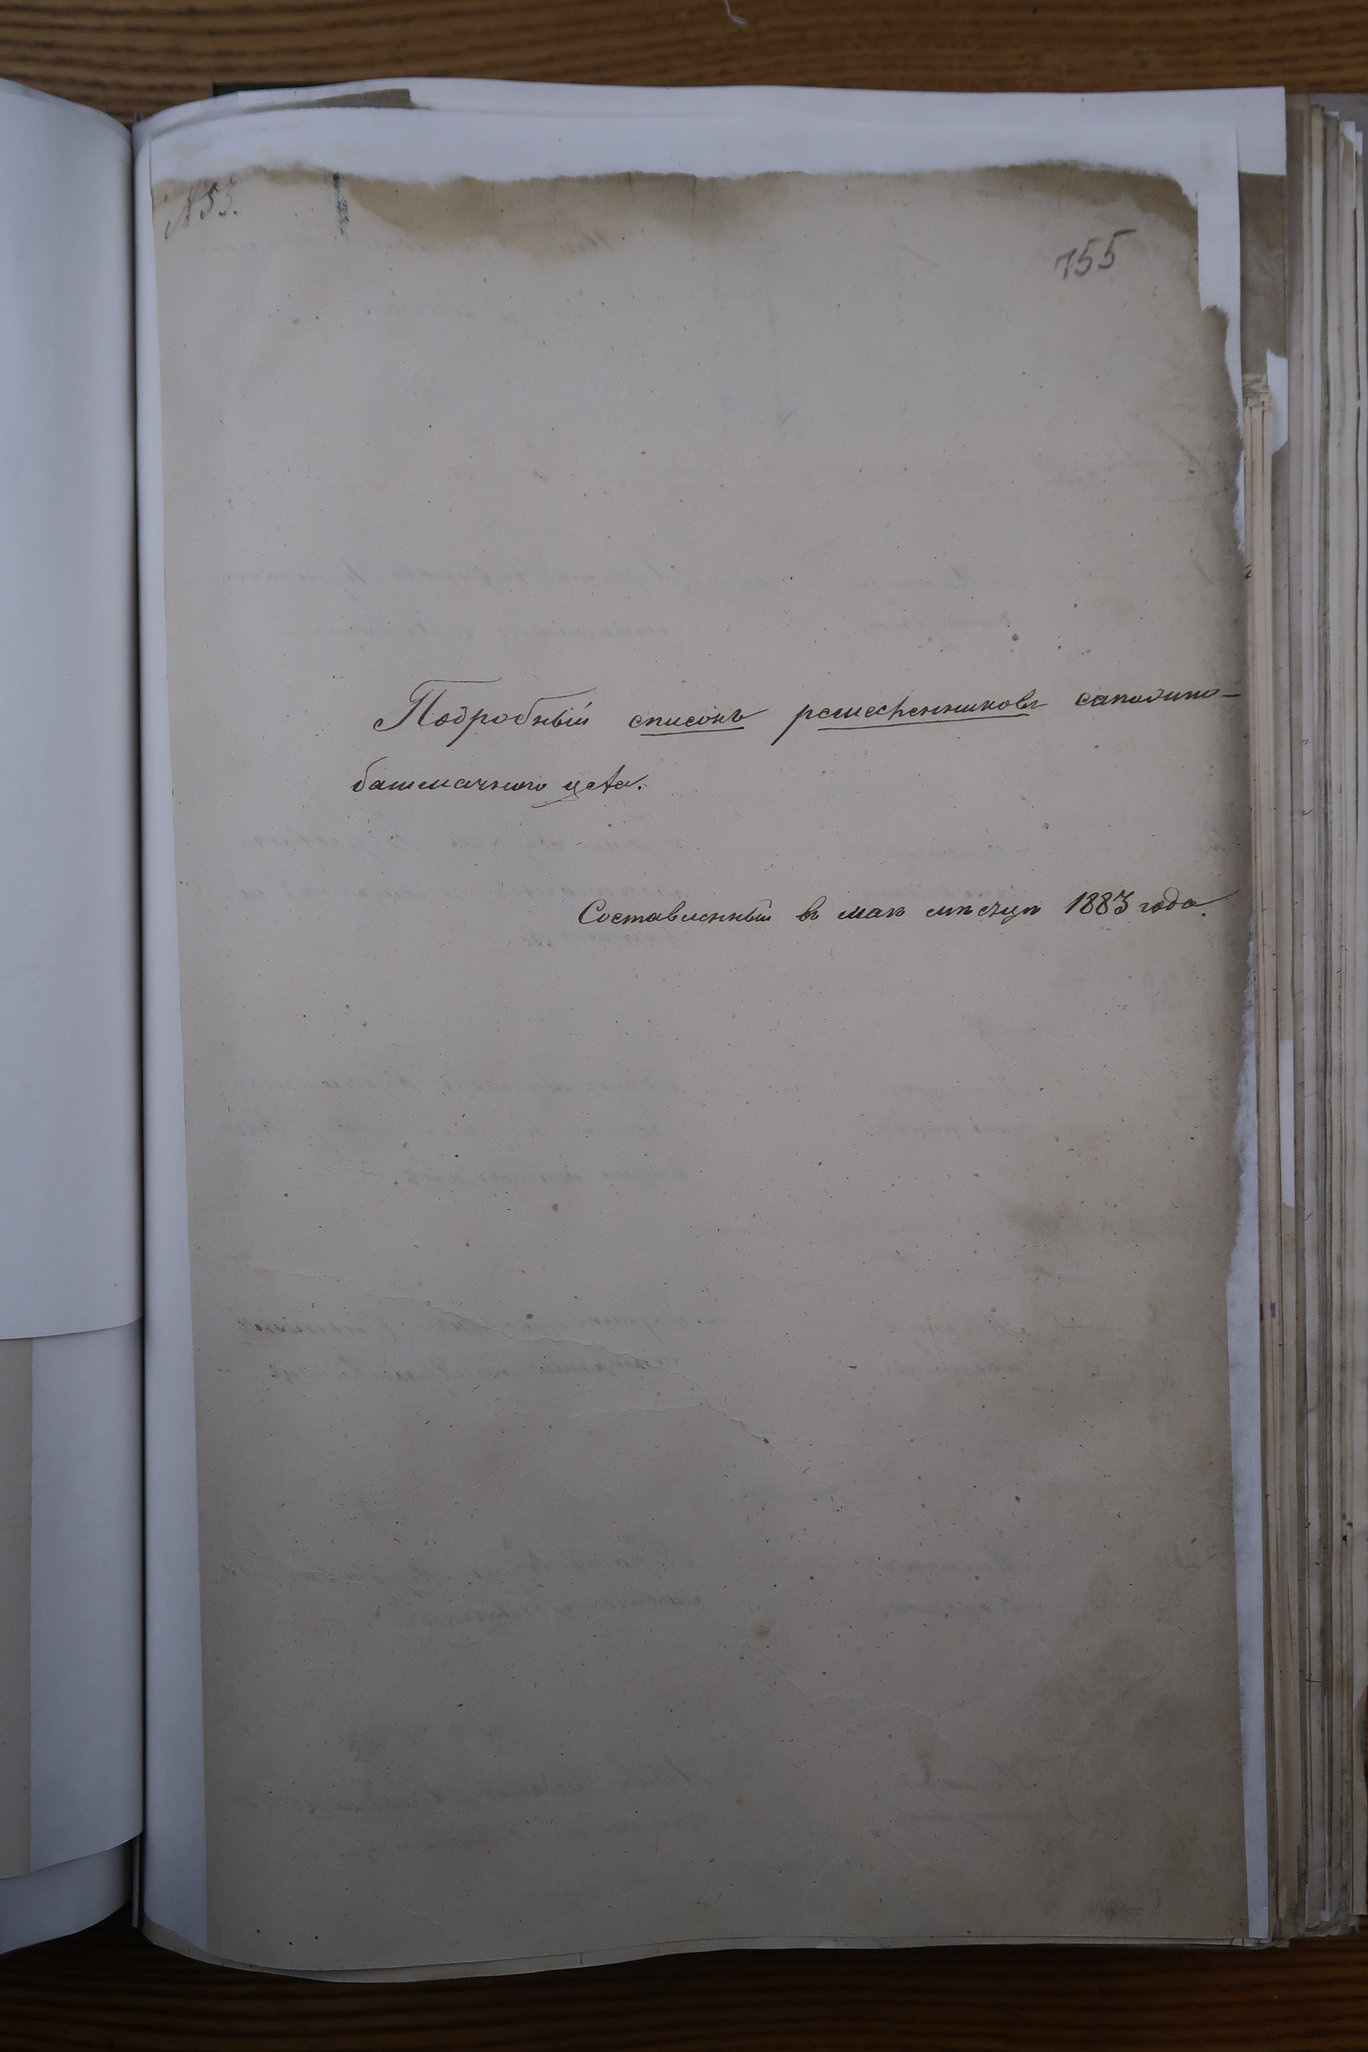 № 53.
155
Подробный списокъ ремесленниковъ сапожно-
башмачного цеха.
Составленный въ маѣ мѣсяцѣ 1883 года.